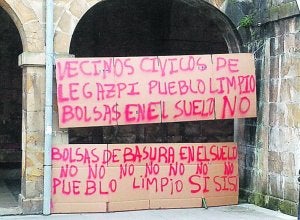 VECINOS CIVICOS DE
LEGAZPI PUEBLO LIMPIO
BOLSAS EN EL SUELO NO
BOLSAS DE BASURA EN EL SUELO
NO NO NO NO NO NO NO
PUEBLO LIMPIO SI SI SI